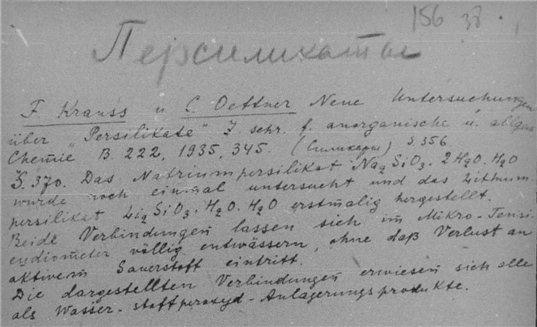 156 38.
Персиликаты
F. Krauss u C. Oettner Neue Untersuchungen
über "Persilikate" Z. schr. f. anorganische u. allgem
Chemie B. 222, 1935, 345. (Силикаты) S. 356
S. 370. Das Natriumpersilikat Na2SiO3 · 2H2O2 · H2O
wurde noch einmal untersucht und das Lithium
persilikat Li2SiO3 · H2O2 · H2O erstmalig hergestellt.
Beide Verbindungen lassen sich im Mikro-Tensi
eudiometer völlig entwässern, ohne daß Verlust an
aktivem Sauerstoff eintritt.
Die dargestellten Verbindungen erwiesen sich alle
als Wasser-stoffperoxyd-Anlagerungsprodukte.